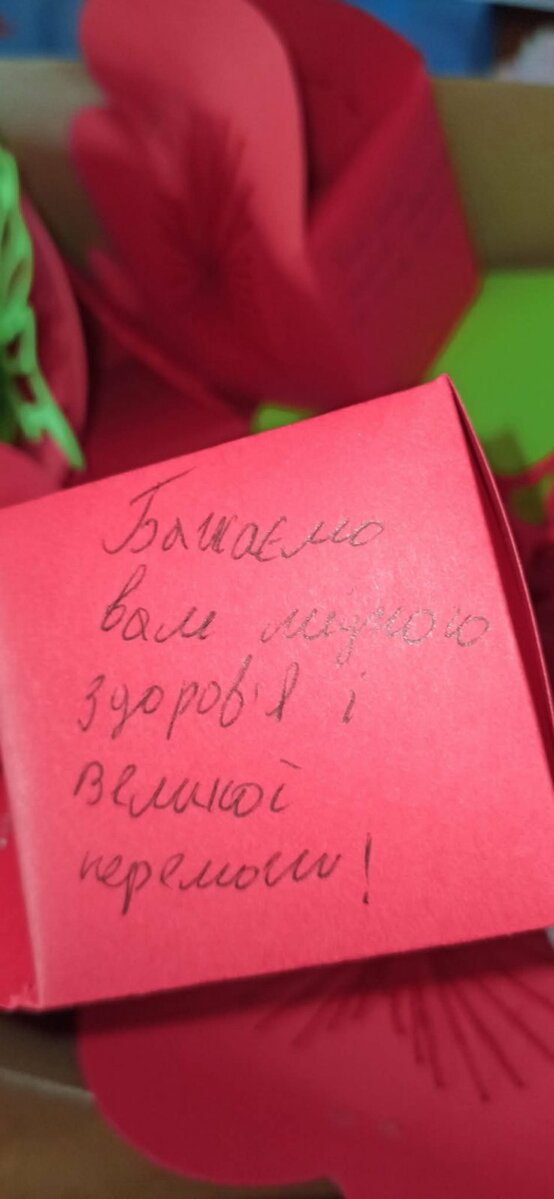 Бажаємо
вам міцного
здоров'я і
великої
перемоги!